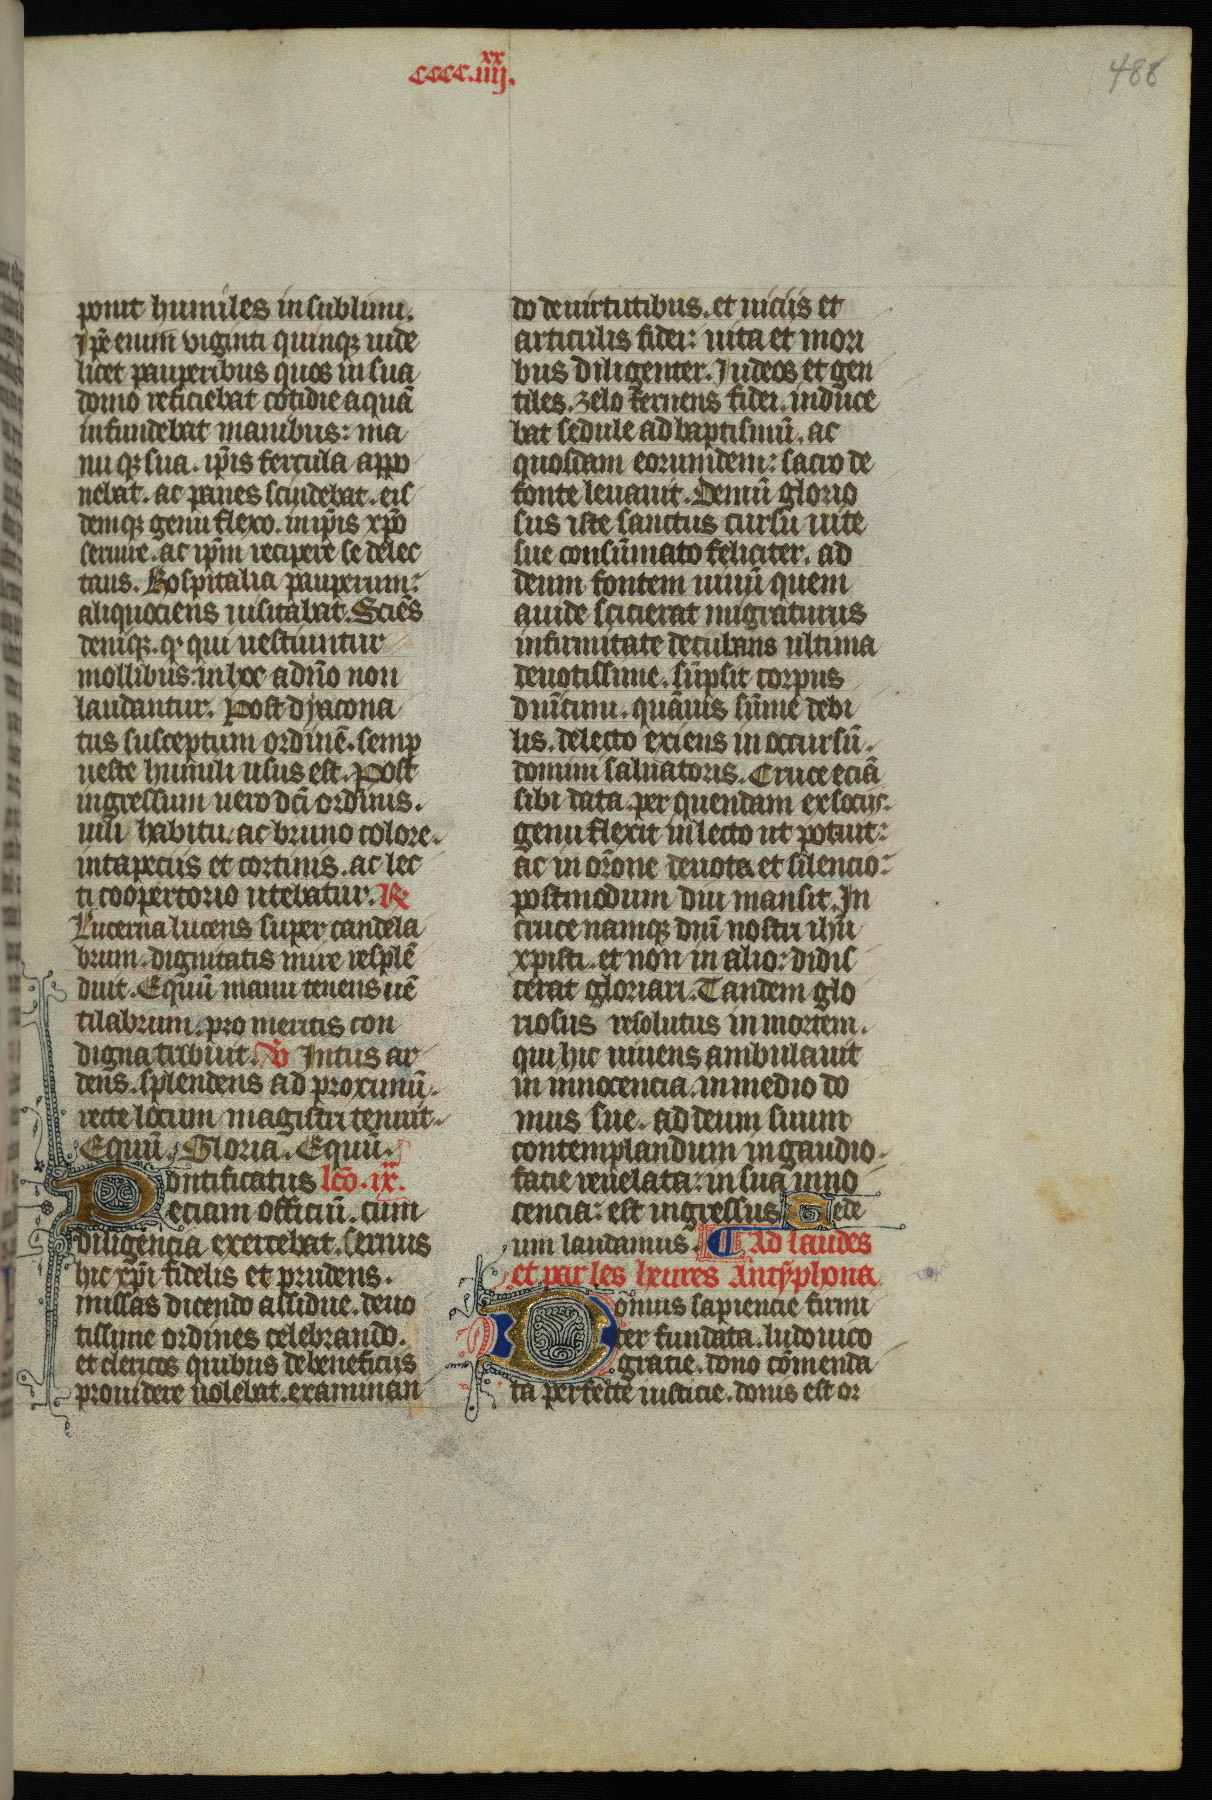 xx
cccc.iiij.
488
ponit humiles in sublimi.
Ip̄e enim viginti quinqꝫ uide
licet pauperibus quos in sua
domo reficiebat cotidie aquā
infundebat manibus: ma
nu qꝫ sua. ip̄is fercula appo
nebat. ac panes scindebat. eis
demqꝫ genu flexo. in ip̄is xp̄o
seruire. ac ip̄m recipere se delec
tans. Hospitalia pauperum:
aliquociens uisitabat. Sciēs
deniqꝫ. ꝙ qui uestiuntur
mollibus: in hoc a dn̄o non
laudantur. Post dyacona
tus susceptum ordinē. semꝑ
ueste humili usus est. Post
ingressum uero dc̄i ordinis.
uili habitu. ac bruno colore.
in tapetiis et cortinis. ac lec
ti coopertorio utebatur. R̷
Lucerna lucens super candela
brum. dignitatis mire resplē
duit. Equū manu tenens uē
tilabrum. pro meritis con
digna tribuit. V̷ Intus ar
dens. splendens ad proximū.
recte locum magistri tenuit.
Equū. Gloria. Equū.
Pontificatus lc̄o. ix.
eciam officiū. cum
diligencia exercebat. seruus
hic xp̄i fidelis et prudens.
missas dicendo assidue. deuo
tissime ordines celebrando.
et clericos quibus de beneficiis
prouidere uolebat. examinan
do de uirtutibus. et uiciis et
articulis fidei: uita et mori
bus diligenter. Iudeos et gen
tiles. zelo feruens fidei. induce
bat sedule ad baptismū. ac
quosdam eorumdem: sacro de
fonte leuauit. Demū glorio
sus iste sanctus cursu uite
sue consūmato feliciter. ad
deum fontem uiuū quem
auide scicierat migraturus
infirmitate decubans ultima
deuotissime. sūpsit corpus
dn̄icum. quāuis sūme debi
lis. de lecto exiens in occursū.
domini saluatoris. Cruce eciā
sibi data. per quendam ex sociis:
genu flexit in lecto ut potuit:
ac in or̄one deuota et silencio:
postmodum diu mansit. In
cruce namqꝫ dn̄i nostri ih̄u
xpisti. et non in alio: didis
cerat gloriari. Tandem glo
riosus resolutus in mortem.
qui hic uiuens ambulauit
in innocencia. in medio do
mus sue. ad deum suum
contemplandum in gaudio.
facie reuelata: in sua inno
cencia: est ingressus. Te de
um laudamus. ¶ Ad laudes
et par les heures Antyphona
Domus sapiencie firmi
ter fundata. ludouico
gratie. dono cōmenda
ta perfecte iusticie. donis est or